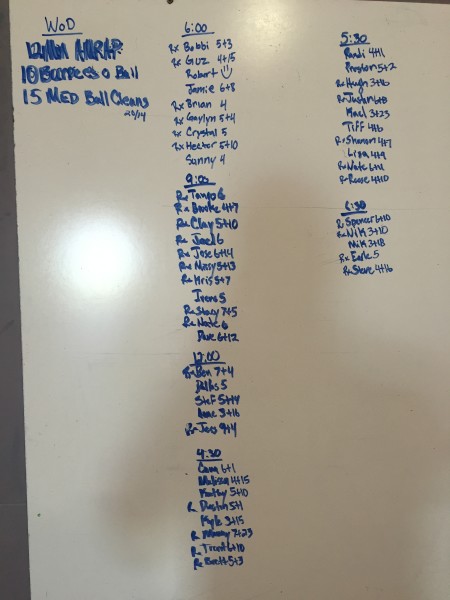 WOD
12 Min AMRAP
10 Burpees o Ball
15 MED Ball Cleans
20/14
6:00
Rx Bobbi 5+3
Rx Guz 4+15
Robert
Jamie 6+8
Rx Brian 4
Rx Gaylyn 5+4
Rx Crystal 5
Rx Hector 5+10
Sunny 4
9:00
Rx Tango 6
Rx Brooke 4+7
Rx Clay 5+10
Rx Joel 6
Rx Jose 6+14
Rx Missy 5+13
Rx Kris 5+7
Irene 5
Rx Stacy 7+5
Rx Nate 6
Dave 6+12
12:00
Rx Ben 7+4
Dallas 5
Stef 5+14
3+16
Rx Jess 9+4
4:30
Cam 6+1
Melissa 4+15
Kathy 5+10
R Dustin 5+1
Kyle 3+15
R Manny 7+23
R Trent 6+10
Rx Brett 5+3
5:30
Randi 4+11
Preston 5+2
Rx Hugh 3+16
Rx Justin 6+8
Maci 3+23
Tiff 4+6
Rx Shannon 4+7
Lisa 4+9
Rx Nate 6+4
Rx Reese 4+10
6:30
R Spencer 6+10
Rx Nik 3+10
Mik 3+18
Rx Earle 5
Rx Steve 4+16